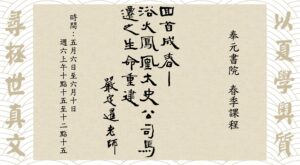 以夏學奧質
奉元書院 春季課程
回首成春—
浴火鳳凰太史公司馬
遷之生命重建
嚴定暹老師
時間：五月六日至六月十日
週六上午十點十五至十二點十五
尋拯世真文